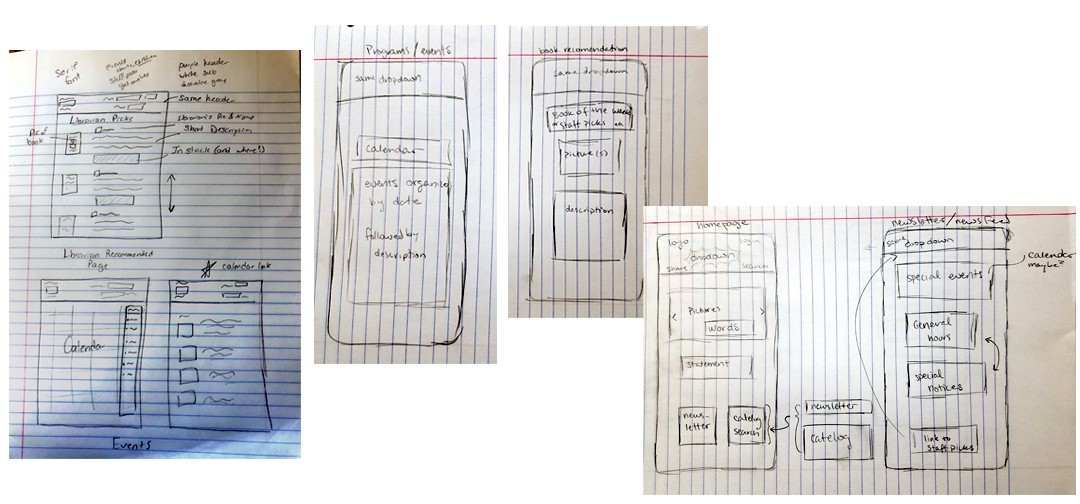 Serif
font
purple header
white sub
Same header
Librarian Picks
Pic of
book
Librarian's Pic & Name
Short Description
In stock (and where!)
Librarian Recommended
Page
calendar link
Calendar
Events
Programs/events
same dropdown
calendar
events organized
by date
followed by
description
book recomendation
same dropdown
Book of the week
staff picks
picture(s)
description
homepage
logo
login
dropdown
share
search
pictures
words
statement
news-
letter
catelog
search
newsletter
catelog
newsletter/newsfeed
same dropdown
calendar
maybe?
special events
General
hours
special
notices
link to
staff picks